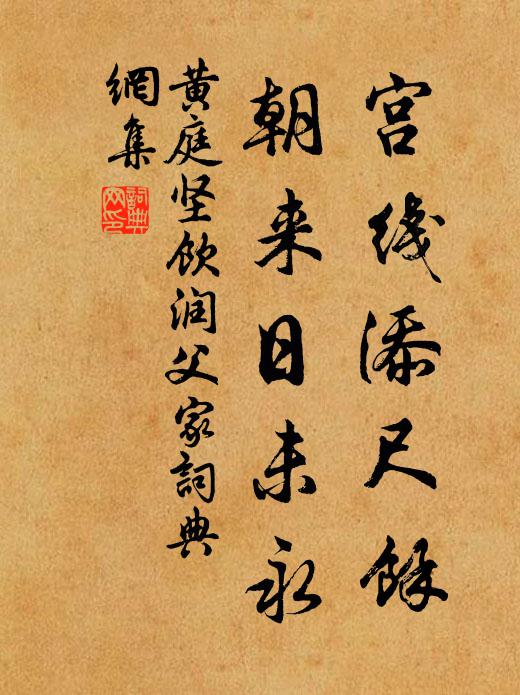 宫线添尺馀
朝来日未永
黄庭坚饮润父家詞典
網集
詞典
网印